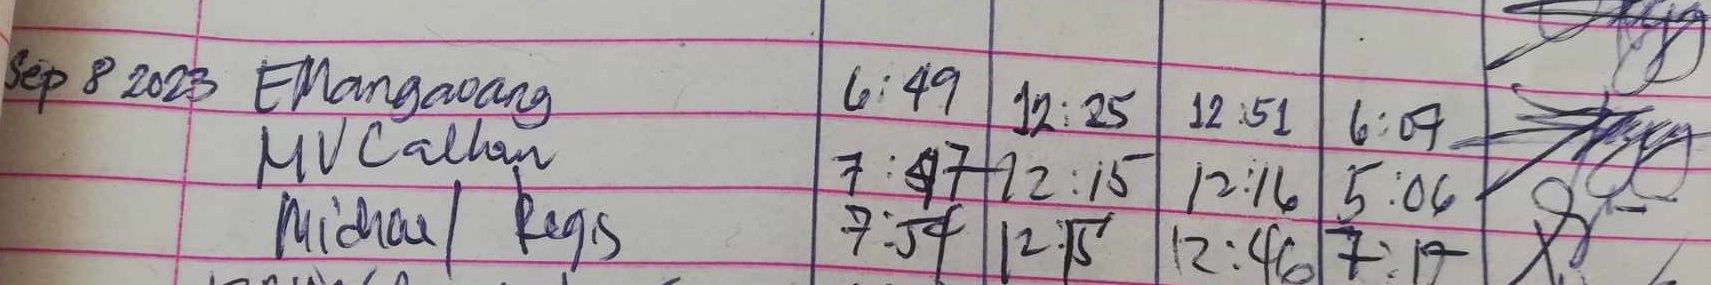 Sep 8 2023 EMangaoang 6:49 12:25 12:51 6:07
MV Calhan 7:47 12:15 12:16 5:06
Michael Regis 7:54 12:15 12:46 7:17